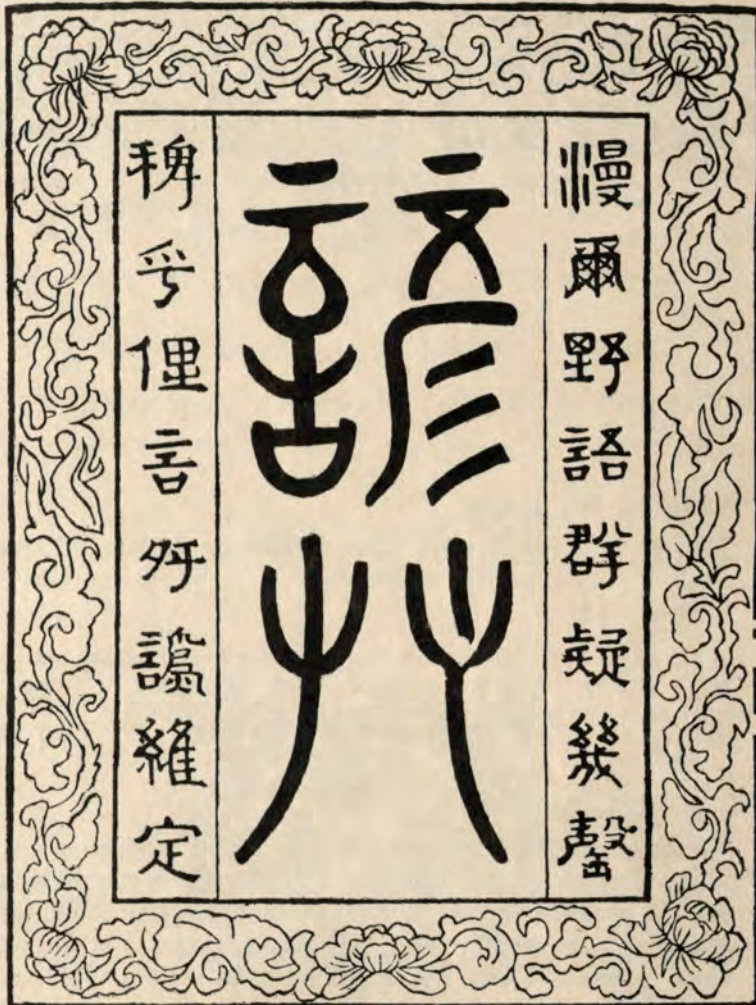 漫爾野語群疑幾罄
諺艸
稗乎俚言所譌維定